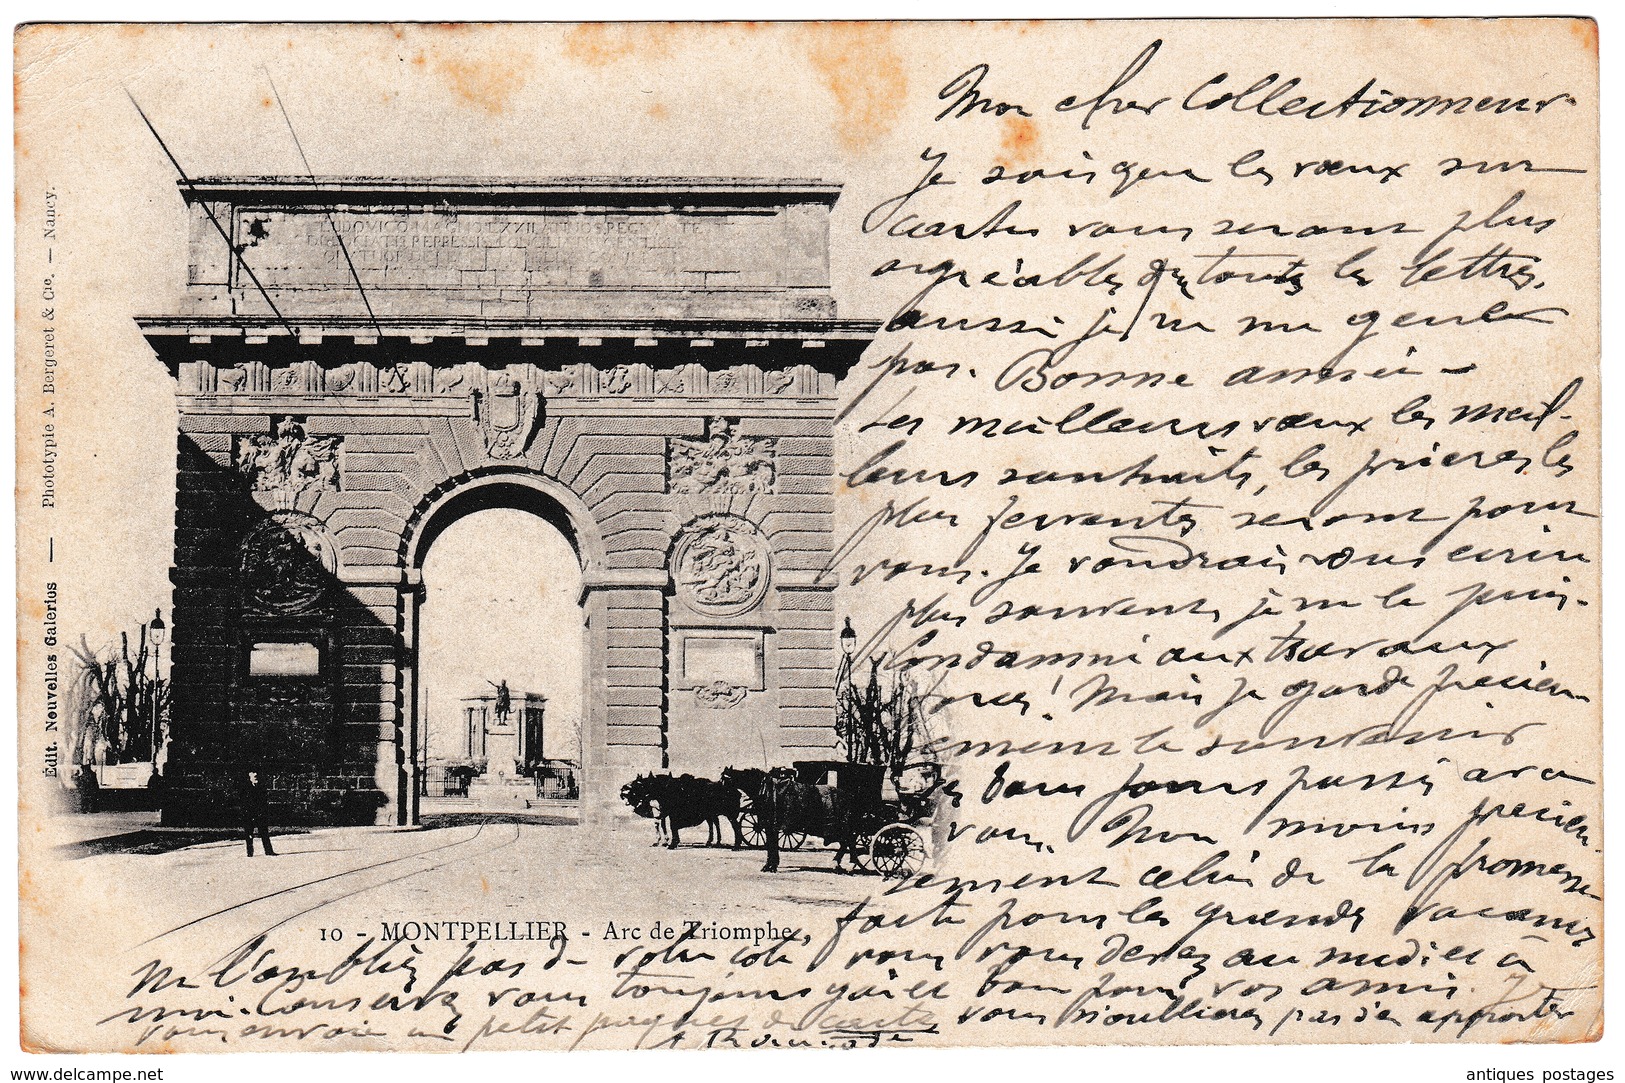 Mon cher Collectionneur
Je sais que les vœux sur
cartes vous seront plus
agréables que toutes les lettres,
aussi je ne me gene
pas. Bonne année -
Les meilleurs vœux les meil-
leurs souhaits, les prières les
plus ferventes seront pour
vous. Je voudrais vous écrire
plus souvent, je ne le puis.
Condamné aux travaux
forcés! Mais je garde précieu
sement le souvenir
des bons jours passés avec
vous. Non moins précieu-
sement celui de la promesse
faite pour les grandes vacances
Ne l'oubliez pas de votre côté, vous vous devez au midi et à
moi. Conservez vous toujours gai et bon pour vos amis. Je
vous envoie un petit paquet de cartes vous n'oublierez pas d'en apporter
LUDOVICO MAGNO LXXII ANNOS REGNANTE
10 - MONTPELLIER - Arc de Triomphe
Édit. Nouvelles Galeries — Phototypie A. Bergeret & Cie. — Nancy.
www.delcampe.net
antiques postages